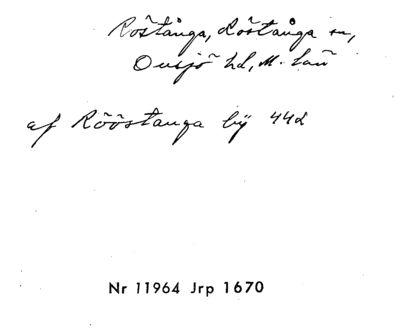 Röstånga, Röstånga sn,
Onsjö hd, M. län
af Rööstanga bÿ 44d
Nr 11964 Jrp 1670